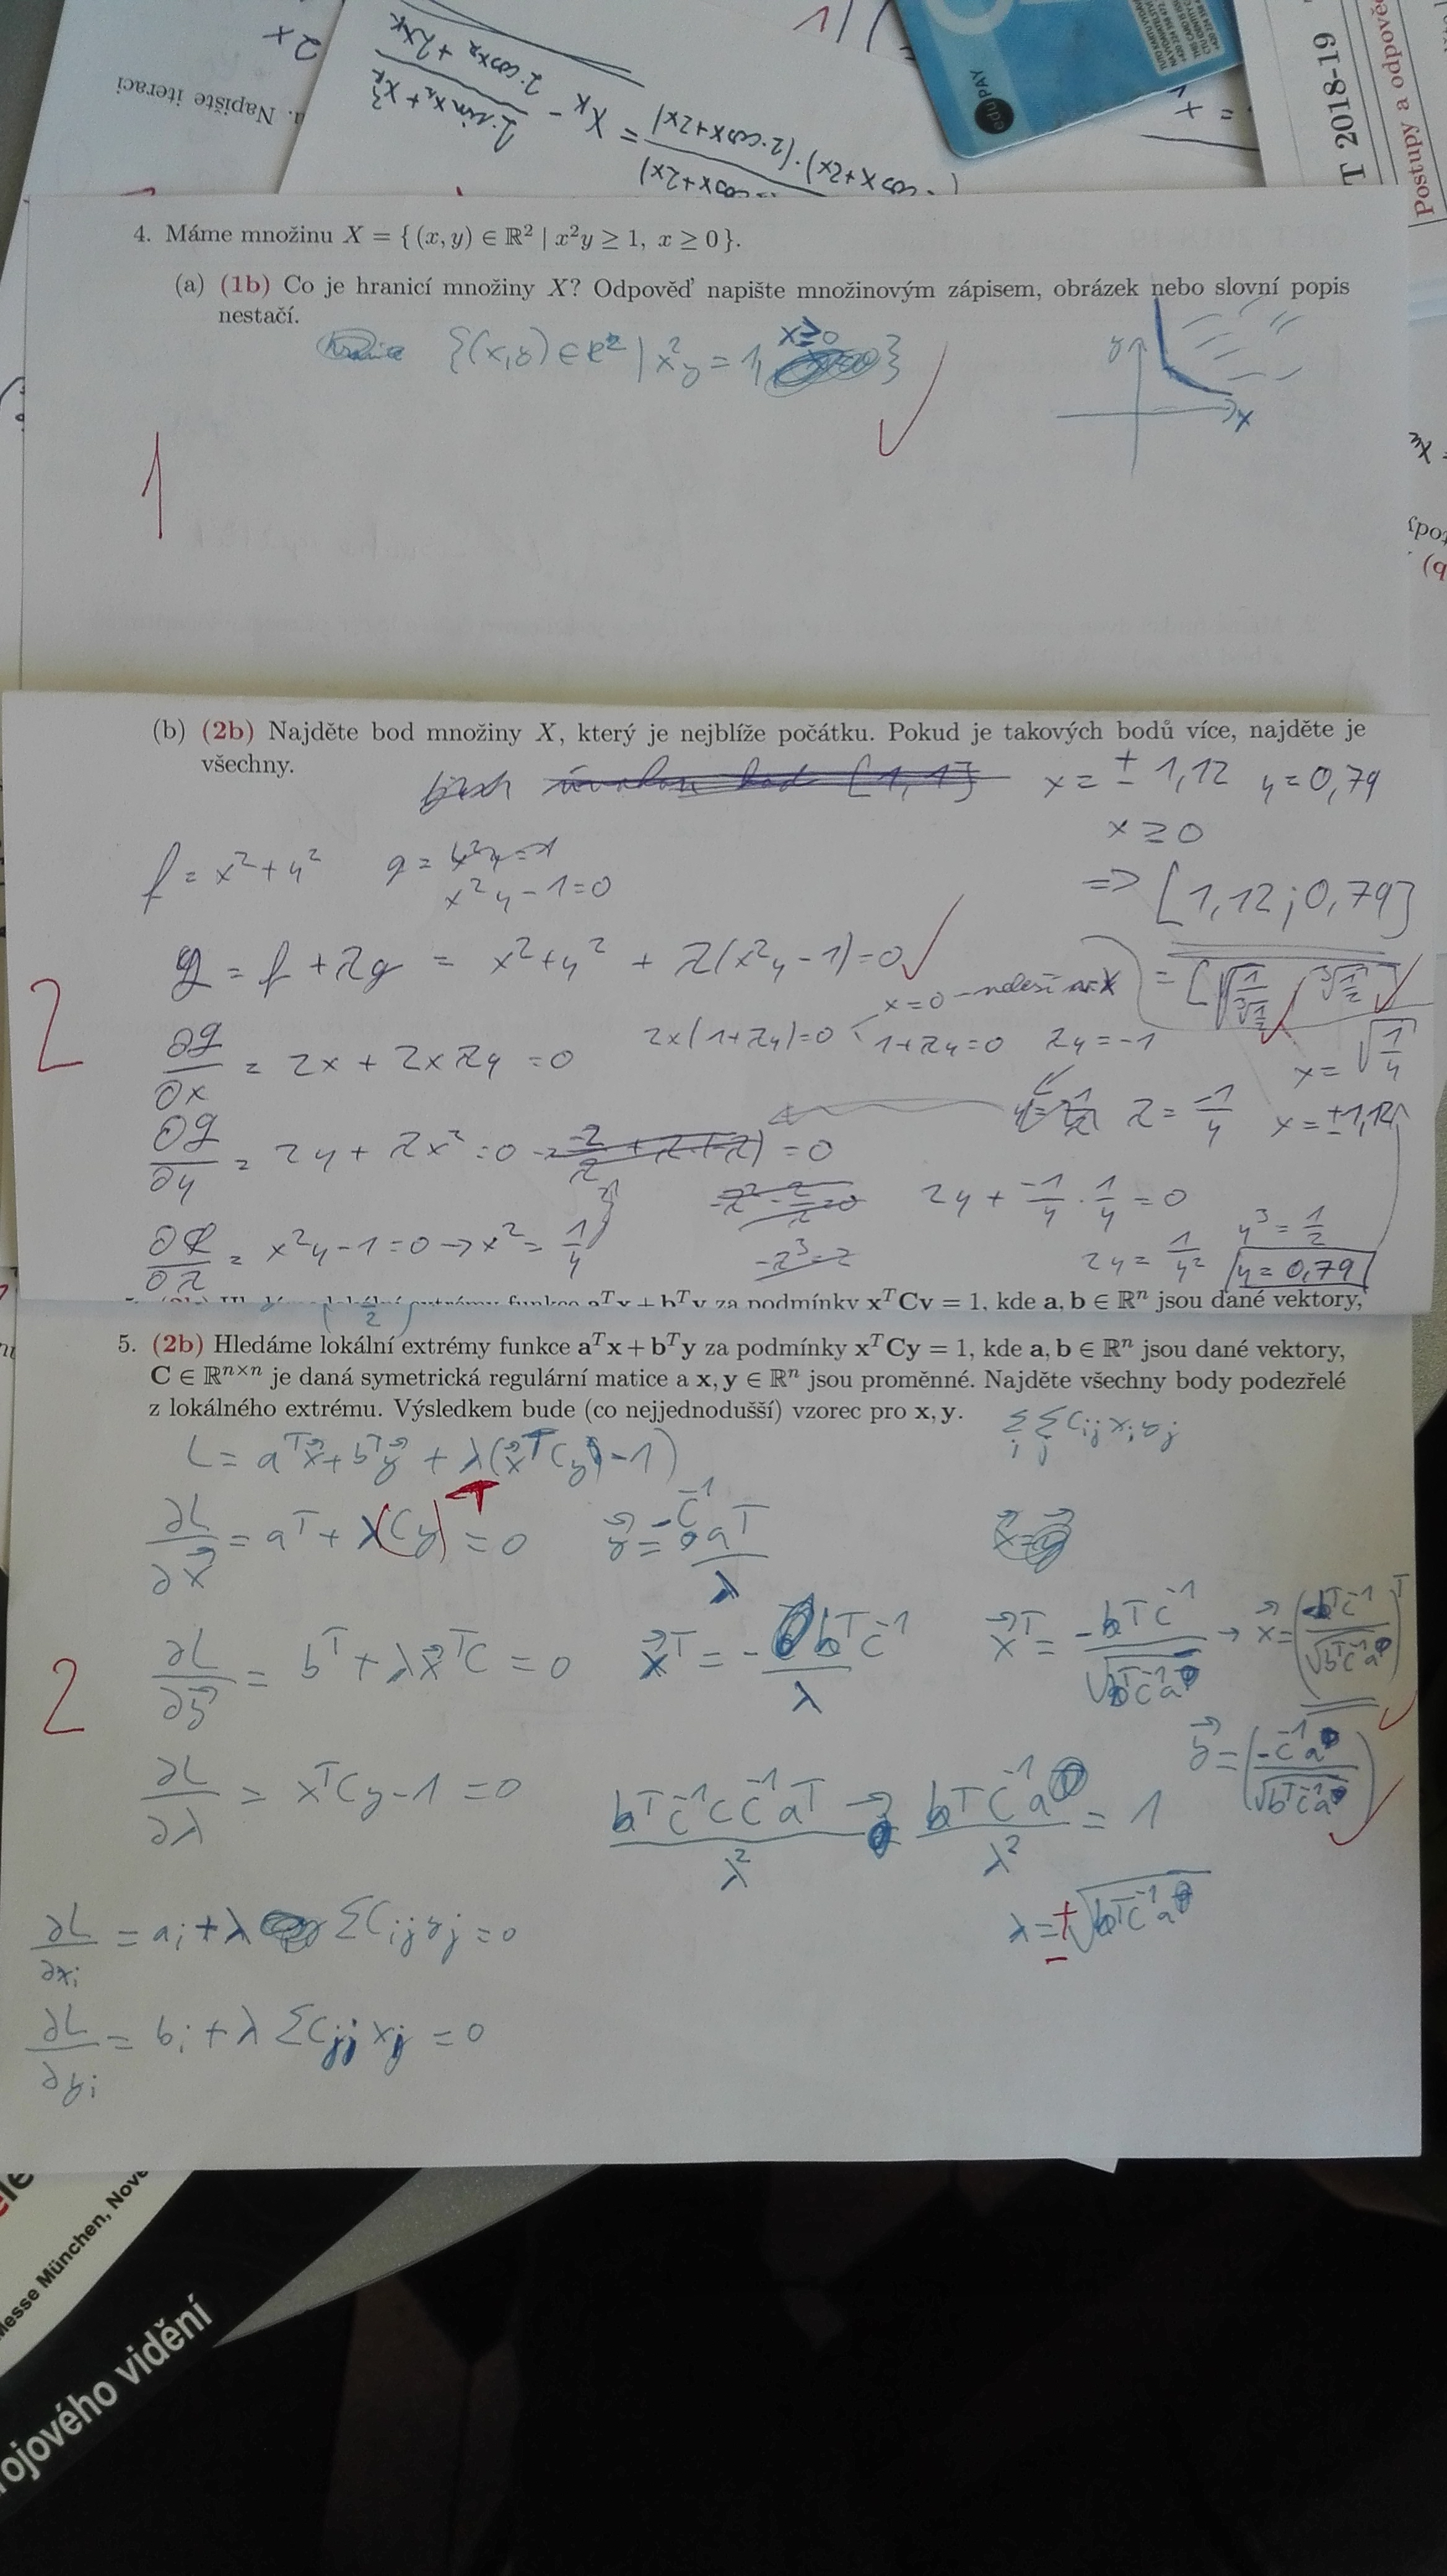 1)
2x
1. Napište iterací
2·sin x_k + x_k²
2·cos x_k + 2x_k
= x_k −
(2·cosx+2x)
cosx+2x)·(2·cosx+2x)
cosx+2x)
edu PAY
T 2018-19
Postupy a odpově
4. Máme množinu X = { (x, y) ∈ ℝ² | x²y ≥ 1, x ≥ 0 }.
(a) (1b) Co je hranicí množiny X? Odpověď napište množinovým zápisem, obrázek nebo slovní popis
nestačí.
{(x,y) ∈ R² | x²y = 1, x≥0}
y
x
1
(b) (2b) Najděte bod množiny X, který je nejblíže počátku. Pokud je takových bodů více, najděte je
všechny.
x = ± 1,12 y = 0,79
x ≥ 0
f = x² + y² g = x²y = 1
x²y − 1 = 0
=> [1,12 ; 0,79]
L = f + λg = x² + y² + λ(x²y − 1) = 0
x=0 – neleší
= [√(1/∛(1/2)) , ∛(1/2)]
2
∂L/∂x = 2x + 2xλy = 0 2x(1+λy)=0 1+λy=0 λy = −1
x = √(1/y)
∂L/∂y = 2y + λx² = 0 = 0 λ = −1/y x = ±1,12
2y + −1/y · 1/y = 0
∂L/∂λ = x²y − 1 = 0 → x² = 1/y 2y = 1/y² y³ = 1/2
y = 0,79
aᵀx + bᵀy za podmínky xᵀCy = 1, kde a, b ∈ ℝⁿ jsou dané vektory,
5. (2b) Hledáme lokální extrémy funkce aᵀx + bᵀy za podmínky xᵀCy = 1, kde a, b ∈ ℝⁿ jsou dané vektory,
C ∈ ℝⁿˣⁿ je daná symetrická regulární matice a x, y ∈ ℝⁿ jsou proměnné. Najděte všechny body podezřelé
z lokálného extrému. Výsledkem bude (co nejjednodušší) vzorec pro x, y.
Σ_i Σ_j C_ij x_i y_j
L = aᵀx + bᵀy + λ(xᵀCy − 1)
∂L/∂x = aᵀ + λ(Cy)ᵀ = 0 y = −C⁻¹aᵀ/λ
∂L/∂y = bᵀ + λxᵀC = 0 xᵀ = − bᵀC⁻¹/λ xᵀ = −bᵀC⁻¹/√(bᵀC⁻¹a) → x = (−bᵀC⁻¹/√(bᵀC⁻¹a))ᵀ
2
y = (−C⁻¹a/√(bᵀC⁻¹a))
∂L/∂λ = xᵀCy − 1 = 0 bᵀC⁻¹CC⁻¹aᵀ/λ² → bᵀC⁻¹a/λ² = 1
λ = ±√(bᵀC⁻¹a)
∂L/∂x_i = a_i + λ ΣC_ij y_j = 0
∂L/∂y_i = b_i + λ ΣC_jj x_j = 0
Messe München, Nove
ojového vidění